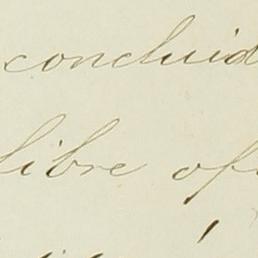 concluid
libre of